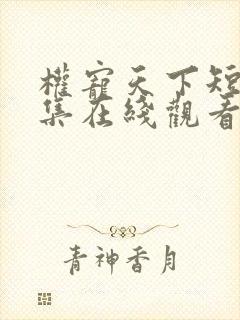 權寵天下短
集在綫觀看
青神香月